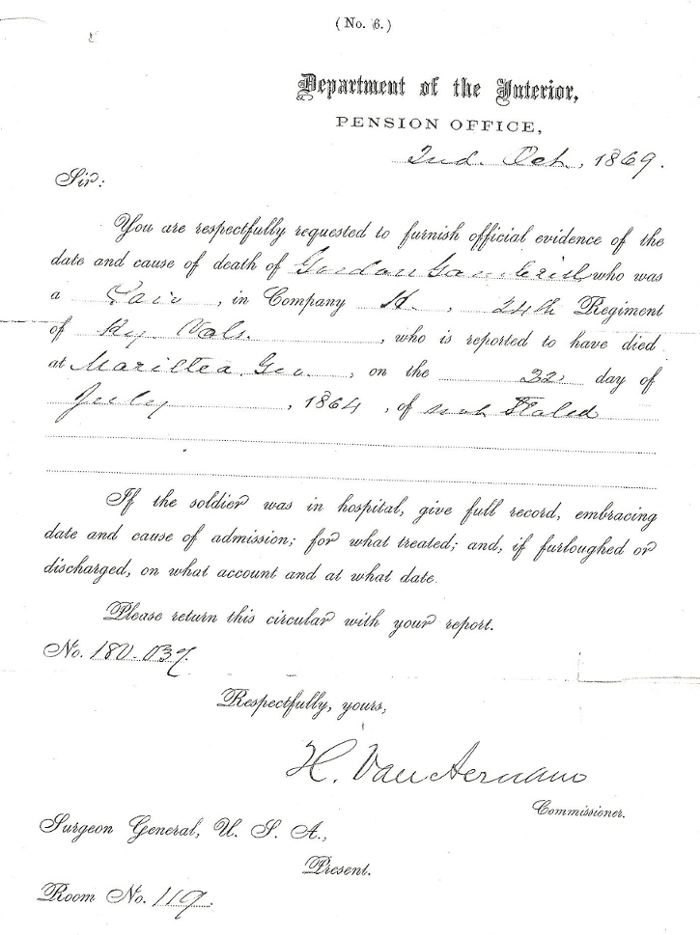 (No. 6.)
Department of the Interior,
PENSION OFFICE,
2nd. Oct, 1869.
Sir:
You are respectfully requested to furnish official evidence of the
date and cause of death of Gordon who was
a , in Company H , 24th Regiment
of Ky Vols. , who is reported to have died
at Mariltea Geo. , on the 22 day of
July , 1864 , of not Stated
If the soldier was in hospital, give full record, embracing
date and cause of admission; for what treated; and, if furloughed or
discharged, on what account and at what date.
Please return this circular with your report.
No. 180.037.
Respectfully, yours,
H. Van Aernam
Commissioner.
Surgeon General, U. S. A.,
Present.
Room No. 119.